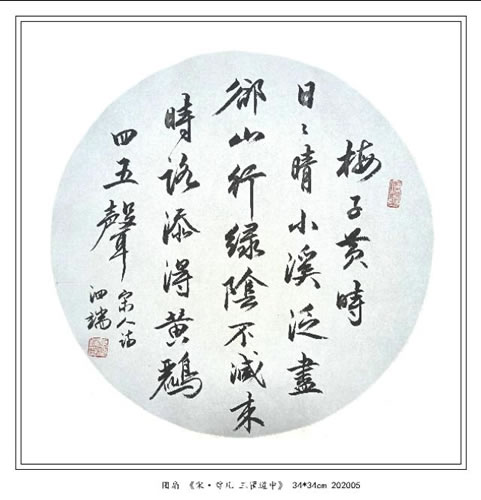 梅子黄時
日〻晴小溪泛盡
郤山行緑陰不减来
時路添得黄鸝
四五聲
宋人詩
泗瑞
团扇 《宋·曾几 三衢道中》 34*34cm 202005